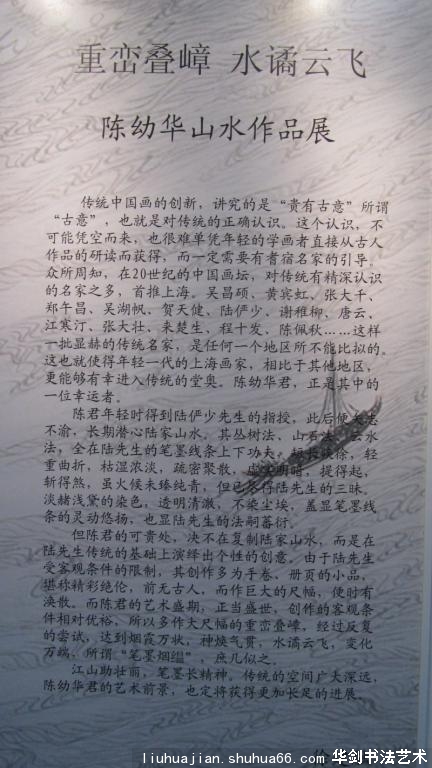 重峦叠嶂 水谲云飞
陈幼华山水作品展
传统中国画的创新，讲究的是“贵有古意”所谓
“古意”，也就是对传统的正确认识。这个认识，不
可能凭空而来，也很难单凭年轻的学画者直接从古人
作品的研读而获得，而一定需要有耆宿名家的引导。
众所周知，在20世纪的中国画坛，对传统有精深认识
的名家之多，首推上海。吴昌硕、黄宾虹、张大千、
郑午昌、吴湖帆、贺天健、陆俨少、谢稚柳、唐云、
江寒汀、张大壮、来楚生、程十发、陈佩秋……这样
一批显赫的传统名家，是任何一个地区所不能比拟的。
这也就使得年轻一代的上海画家，相比于其他地区，
更能够有幸进入传统的堂奥。陈幼华君，正是其中的
一位幸运者。
陈君年轻时得到陆俨少先生的指授，此后便矢志
不渝，长期潜心陆家山水。其丛树法、山石法、云水
法，全在陆先生的笔墨线条上下功夫，短长疾徐，轻
重曲折，枯湿浓淡，疏密聚散，虚实明暗，提得起，
斩得煞，虽火候未臻纯青，但已颇得陆先生的三昧。
淡赭浅黛的染色，透明清澈，不染尘埃，盖显笔墨线
条的灵动悠扬，也显陆先生的法嗣蕃衍。
但陈君的可贵处，决不在复制陆家山水，而是在
陆先生传统的基础上演绎出个性的创意。由于陆先生
受客观条件的限制，其创作多为手卷、册页的小品，
堪称精彩绝伦，前无古人，而作巨大的尺幅，便时有
涣散。而陈君的艺术盛期，正当盛世，创作的客观条
件相对优裕，所以多作大尺幅的重峦叠嶂。经过反复
的尝试，达到烟霞万状，神焕气贯，水谲云飞，变化
万端，所谓“笔墨烟缊”，庶几似之。
江山助壮丽，笔墨长精神。传统的空间广大深远，
陈幼华君的艺术前景，也定将获得更加长足的进展。
liuhuajian.shuhua66.com 华剑书法艺术